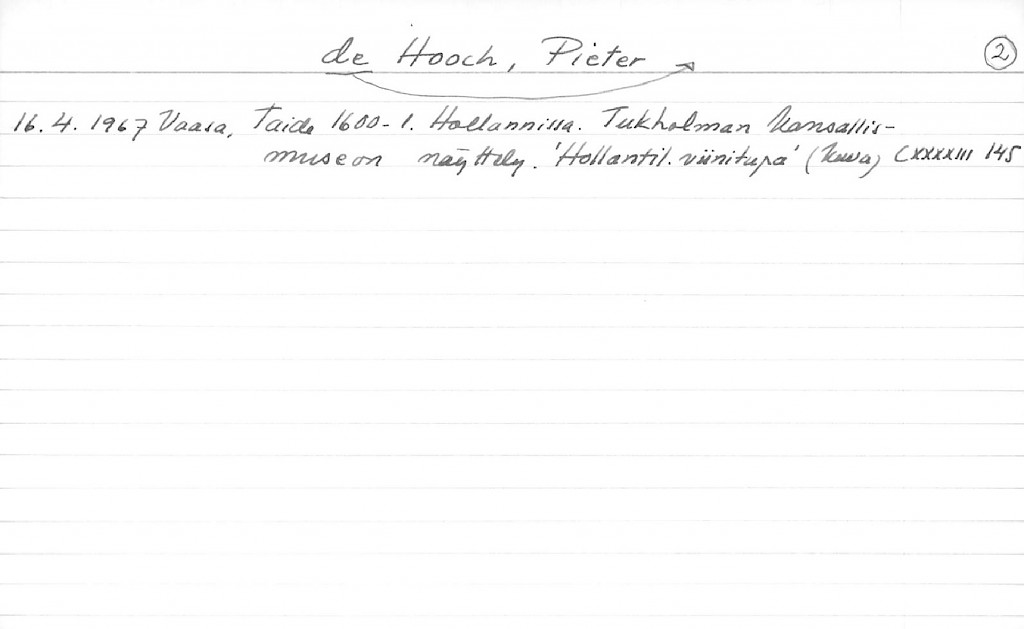 de Hooch, Pieter
2
16.4.1967 Vaasa, Taide 1600-l. Hollannissa. Tukholman Kansallis-
museon näyttely. 'Hollantil. viinitupa' (kuva) CXXXXIII 145